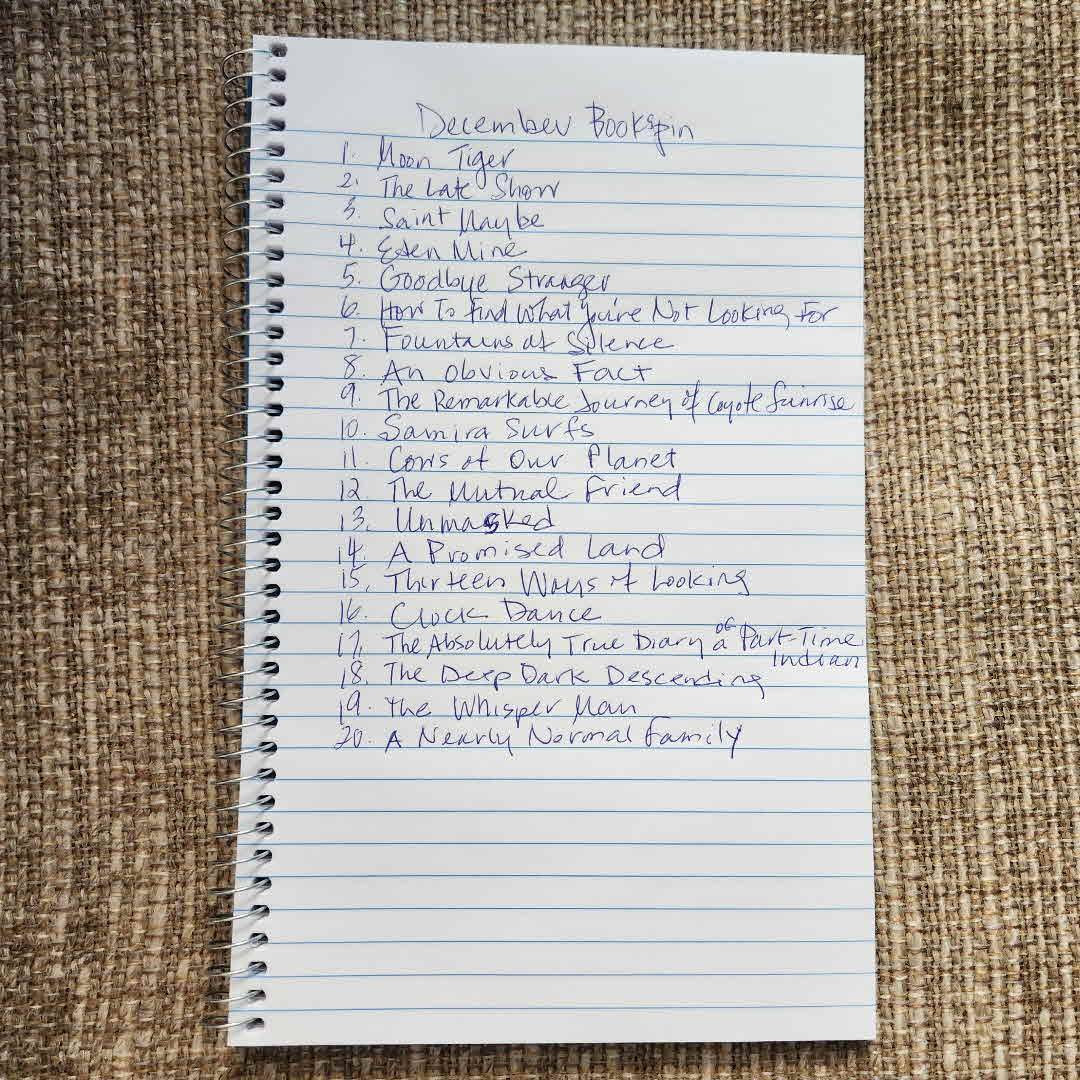 December Bookspin
1. Moon Tiger
2. The Late Show
3. Saint Maybe
4. Eden Mine
5. Goodbye Stranger
6. How To Find What You're Not Looking For
7. Fountains of Silence
8. An Obvious Fact
9. The Remarkable Journey of Coyote Sunrise
10. Samira Surfs
11. Cows of Our Planet
12. The Mutual Friend
13. Unmasked
14. A Promised Land
15. Thirteen Ways of Looking
16. Clock Dance
17. The Absolutely True Diary of a Part-Time
Indian
18. The Deep Dark Descending
19. The Whisper Man
20. A Nearly Normal Family